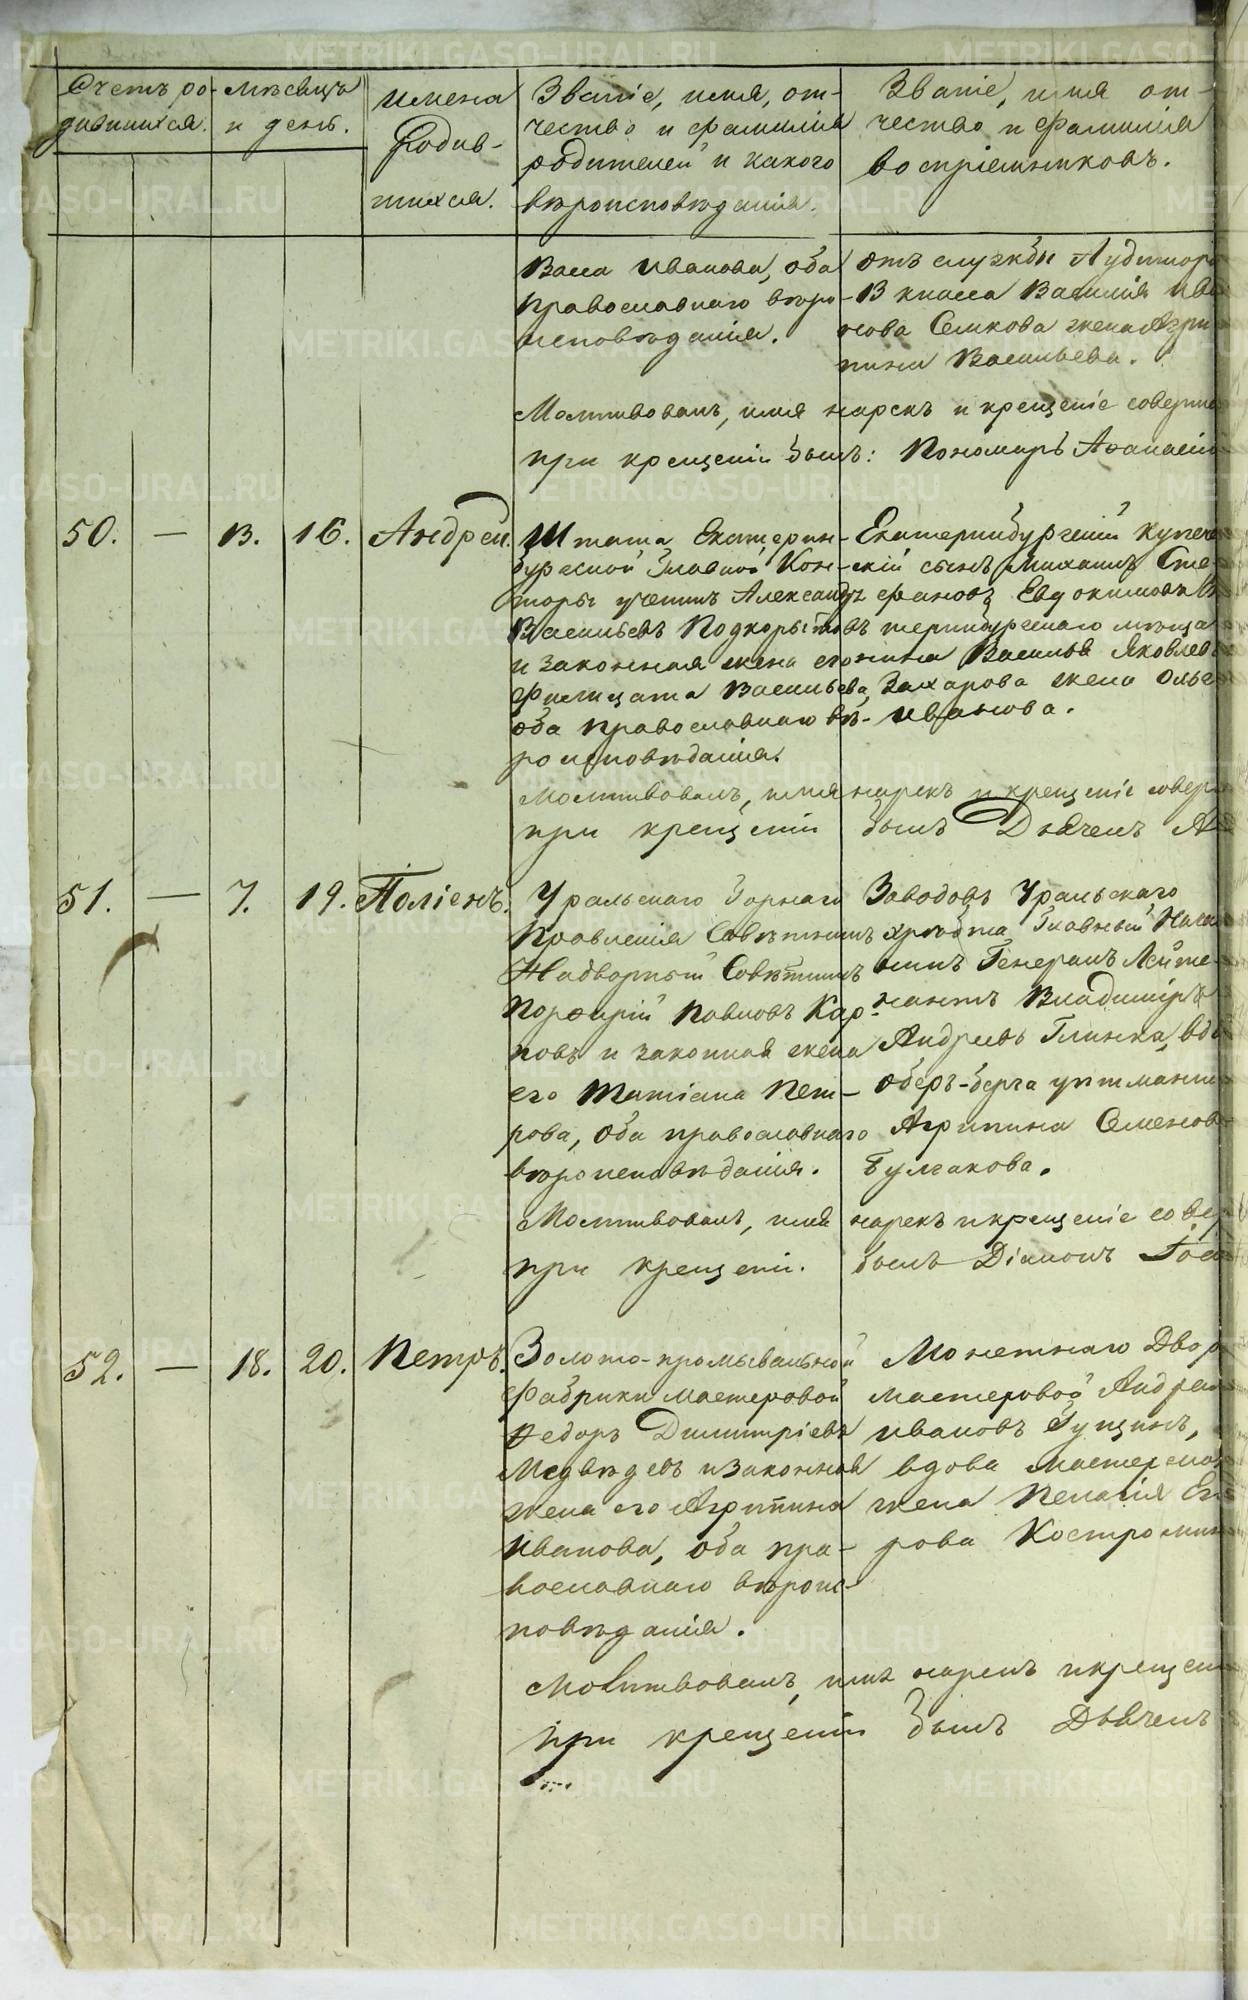 Счетъ ро-
дившихся.
Мѣсяцъ
и день.
Имена
Родив-
шихся.
Званіе, имя, от-
чество и фамилія
родителей и какого
вѣроисповѣданія.
Званіе, имя от-
чество и фамилія
воспріемниковъ.
Васса Иванова, оба
православнаго вѣро-
исповѣданія.
отъ службы Аудитора
13 класса Василія Ива
нова Семкова жена Агри
пина Васильева.
Молитвовалъ, имя нарекъ и крещеніе соверши
при крещеніи былъ: Пономарь Аѳанасій
50. — 13. 16. Андрей.
Штата Екатерин-
бургской Главной Кон-
торы ученикъ Александръ
Васильевъ Подкорытовъ
и законная жена его
Филицата Васильева,
оба православнаго вѣ-
роисповѣданія.
Екатеринбургскій купече
скій сынъ Михаилъ Сте
фановъ Евдокимовъ Ека
теринбургскаго мѣща
нина Василья Яковлева
Захарова жена Ольга
Иванова.
Молитвовалъ, имя нарекъ и крещеніе совер
при крещеніи былъ Дьячекъ А
51. — 7. 19. Поліенъ.
Уральскаго Горнаго
Правленія Совѣтникъ
Надворный Совѣтникъ
Порфирій Павловъ Кар-
повъ и законная жена
его Татіана Пет-
рова, оба православнаго
вѣроисповѣданія.
Заводовъ Уральскаго
хребта Главный Нача
никъ Генералъ Лейте-
нантъ Владиміръ
Андреевъ Глинка, вдо
Оберъ-берга уптмана
Агрипина Семенов
Булгакова.
Молитвовалъ, имя нарекъ и крещеніе совер
при крещеніи. былъ Діаконъ Іоа
52. — 18. 20. Петръ.
Золото-промывальной
фабрики мастеровой
Ѳедоръ Димитріевъ
Медвѣдевъ и законная
жена его Агрипина
Иванова, оба пра-
вославнаго вѣроис-
повѣданія.
Монетнаго Двор
мастеровой Андрей
Ивановъ Гущинъ,
вдова мастерска
жена Пелагія Его
рова Костромина
Молитвовалъ, имя нарекъ и крещені
при крещеніи былъ Дьячекъ
METRIKI.GASO-URAL.RU